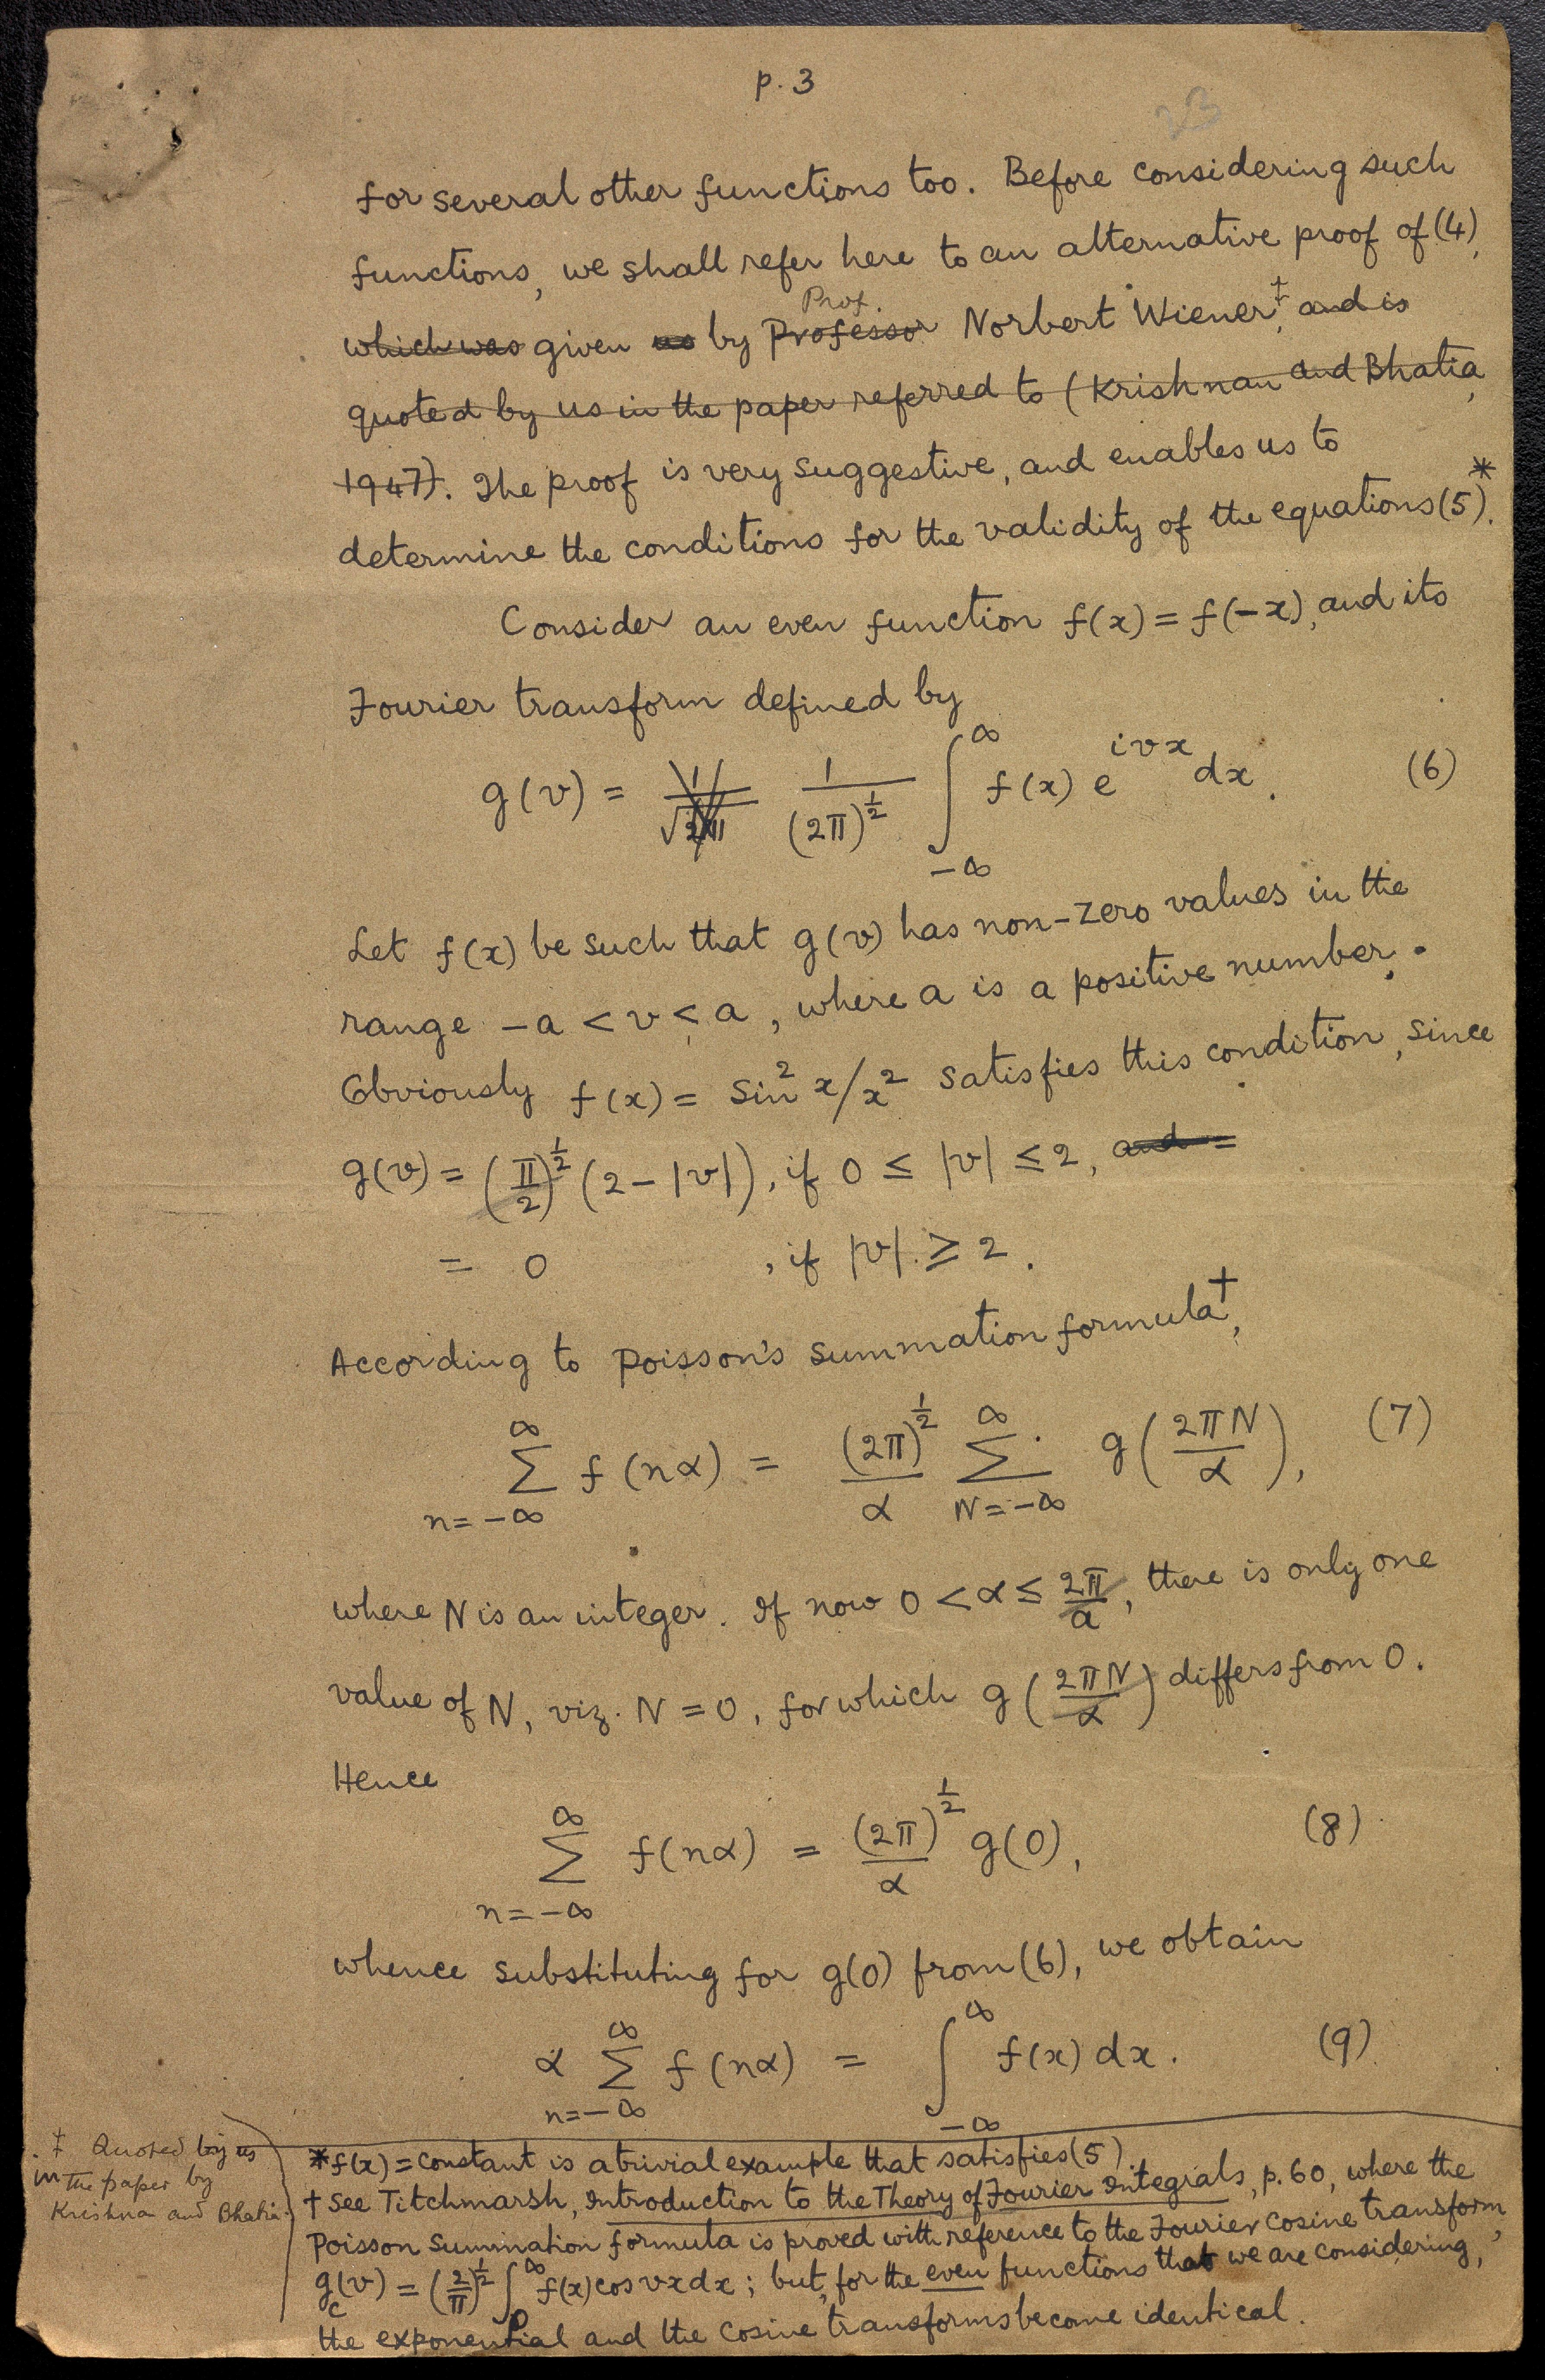 p. 3
23
for several other functions too. Before considering such
functions, we shall refer here to an alternative proof of (4),
Prof.
which was given us by Professor Norbert Wiener‡, and is
quoted by us in the paper referred to (Krishnan and Bhatia,
1947). The proof is very suggestive, and enables us to
determine the conditions for the validity of the equations (5)*.
Consider an even function f(x) = f(−x), and its
Fourier transform defined by
g(v) = 1/√2π 1/(2π)^½ ∫_{−∞}^{∞} f(x) e^{ivx} dx. (6)
Let f(x) be such that g(v) has non-zero values in the
range −a < v < a, where a is a positive number.
Obviously f(x) = Sin² x/x² satisfies this condition, since
g(v) = (π/2)^½ (2 − |v|), if 0 ≤ |v| ≤ 2, and =
= 0 , if |v| ≥ 2.
According to Poisson's summation formula†,
∑_{n=−∞}^{∞} f(nα) = (2π)^½/α ∑_{N=−∞}^{∞} g(2πN/α), (7)
where N is an integer. If now 0 < α ≤ 2π/a, there is only one
value of N, viz. N = 0, for which g(2πN/α) differs from 0.
Hence
∑_{n=−∞}^{∞} f(nα) = (2π)^½/α g(0), (8)
whence substituting for g(0) from (6), we obtain
α ∑_{n=−∞}^{∞} f(nα) = ∫_{−∞}^{∞} f(x) dx. (9)
‡ Quoted by us
in the paper by
Krishna and Bhatia.
* f(x) = constant is a trivial example that satisfies (5).
† See Titchmarsh, Introduction to the Theory of Fourier Integrals, p. 60, where the
Poisson Summation formula is proved with reference to the Fourier cosine transform,
g_c(v) = (2/π)^½ ∫_0^∞ f(x) cos vx dx; but, for the even functions that we are considering,
the exponential and the cosine transforms become identical.